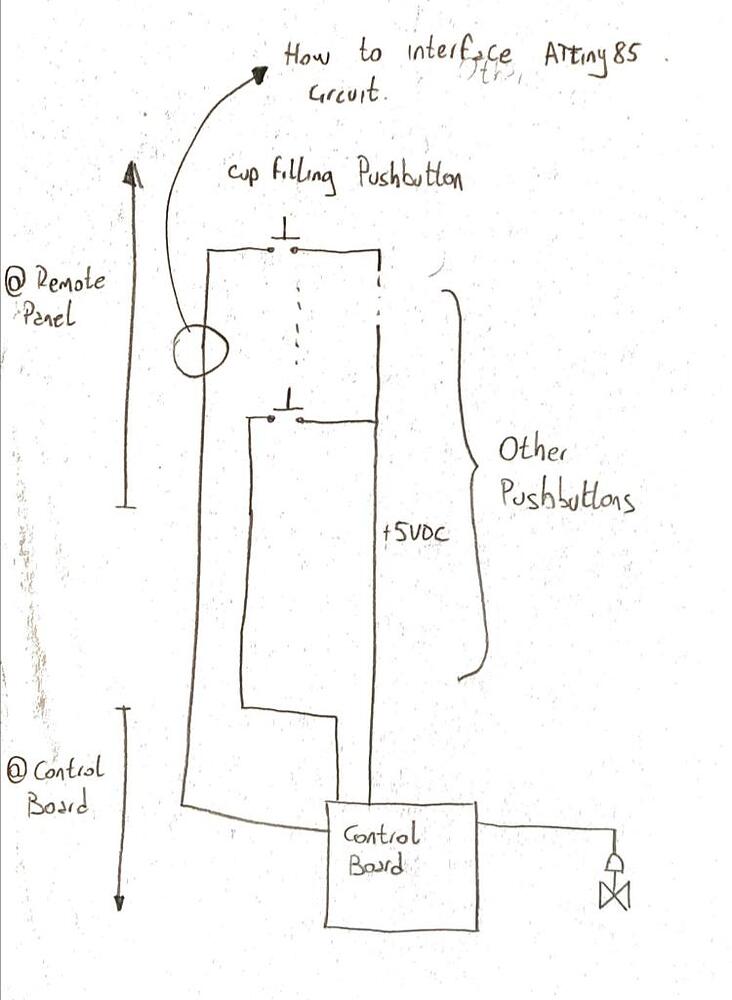 How to interface ATtiny85
Circuit.
Cup filling Pushbutton
@ Remote
Panel
Other
Pushbuttons
+5VDC
@ Control
Board
Control
Board